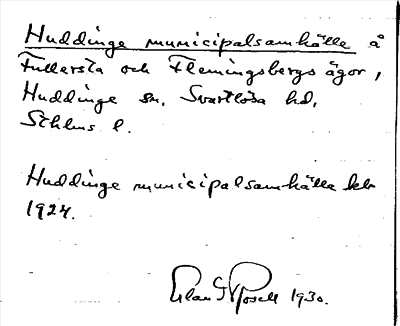 Huddinge municipalsamhälle å
Fullersta och Flemingsbergs ägor,
Huddinge sn, Svartlösa hd,
Sthlms l.
Huddinge municipalsamhälle
1924.
1930.